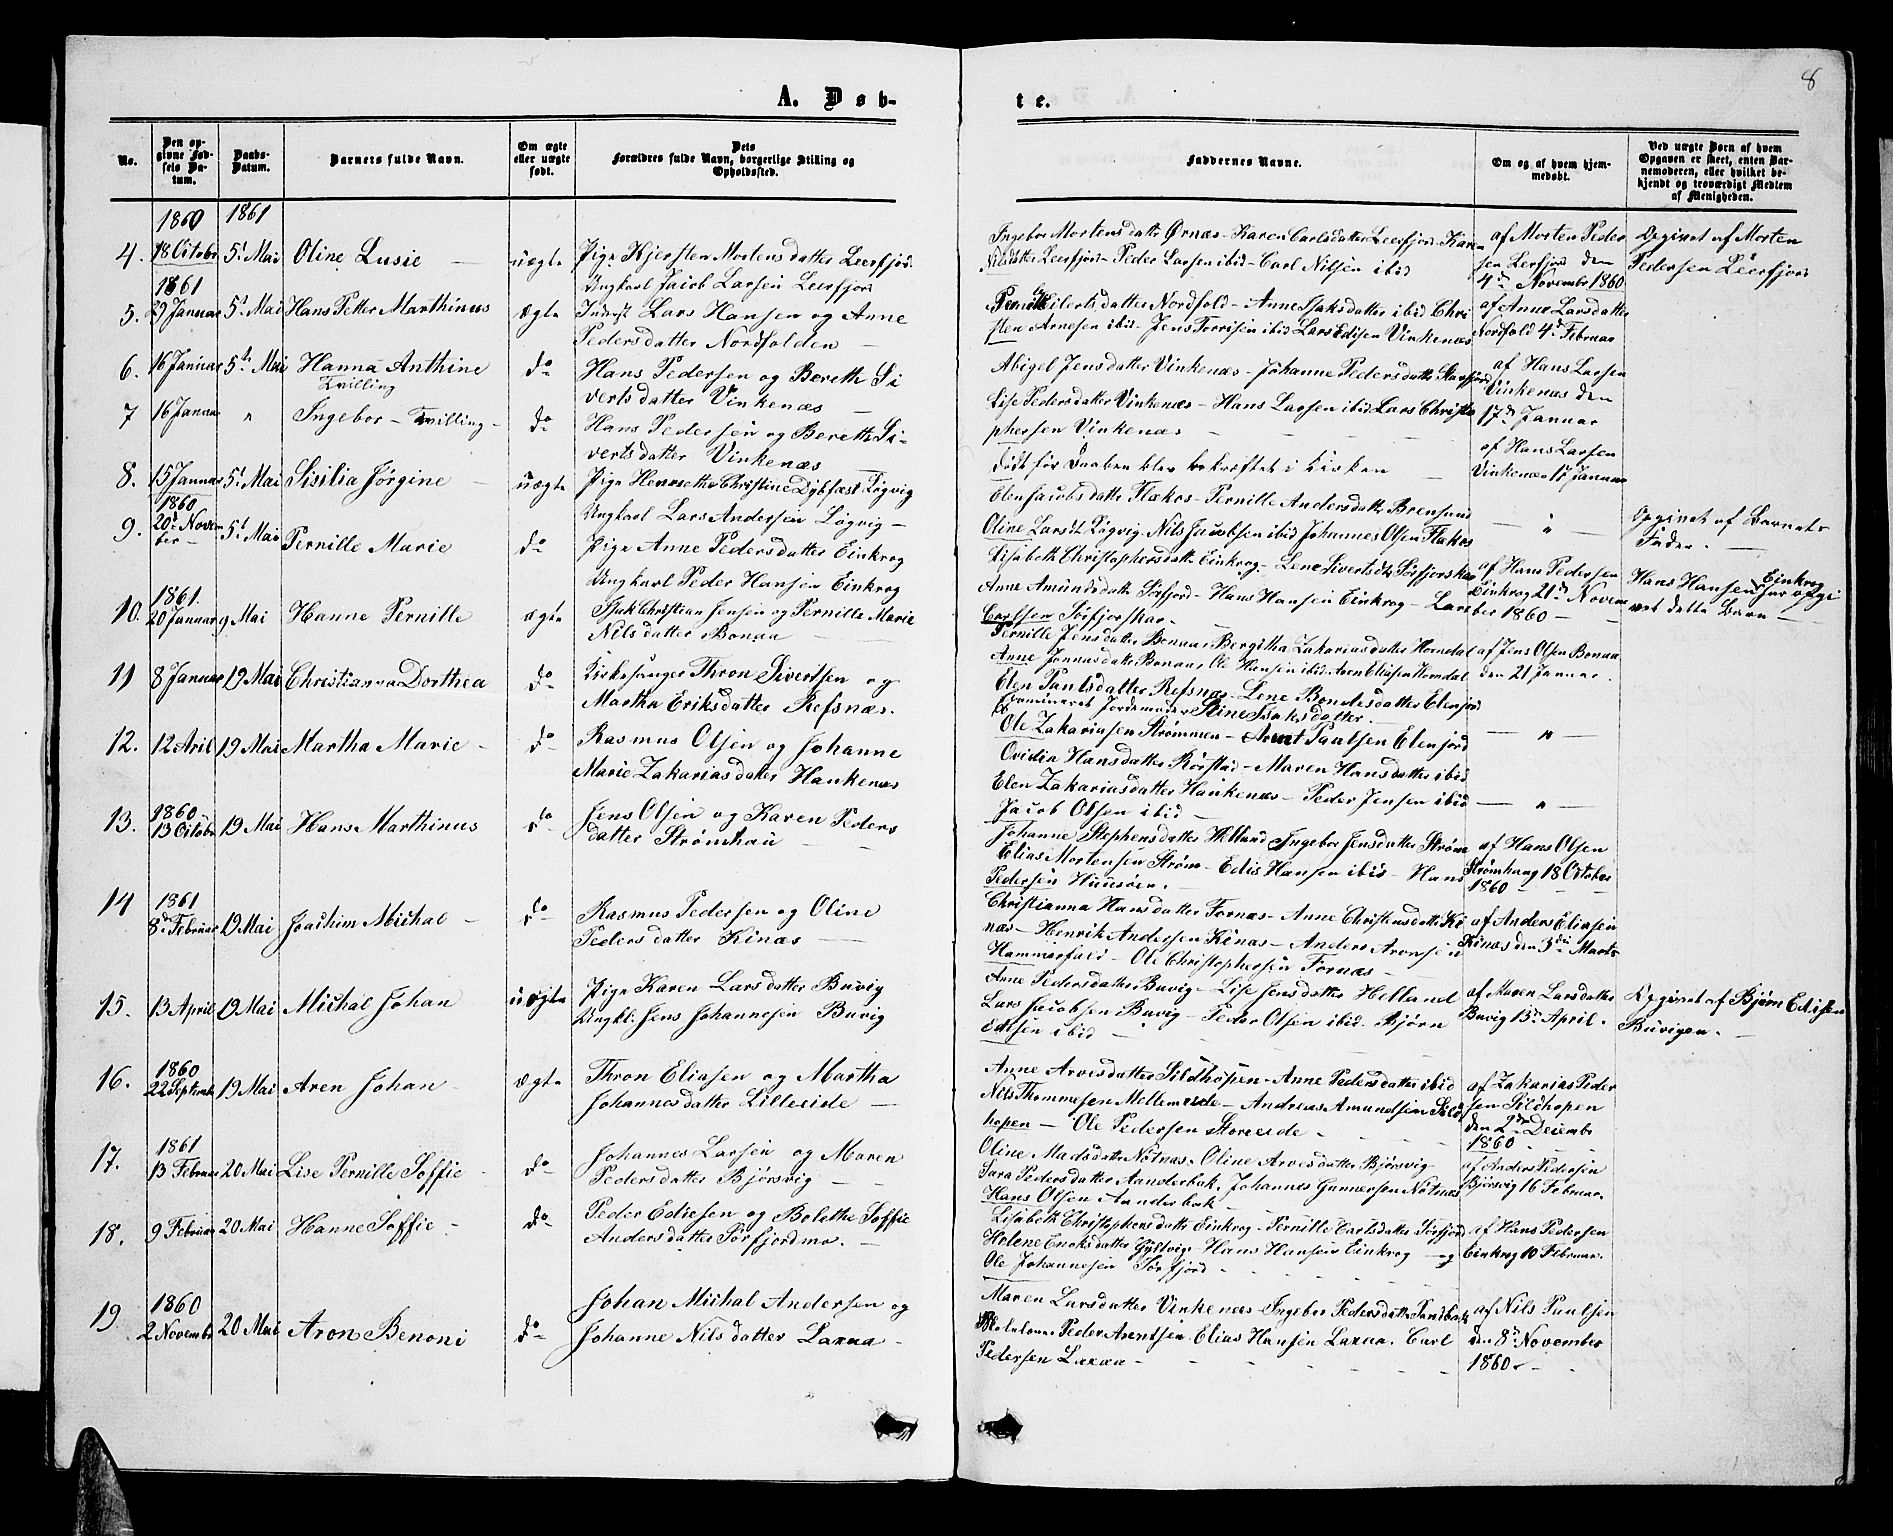 8
A. Døb-
te.
No.
Den opgivne Fødsels Datum.
Daabs-Datum.
Barnets fulde Navn.
Om ægte eller uægte født.
Dets Forældres fulde Navn, borgerlige Stilling og Opholdssted.
Faddernes Navne.
Om og af hvem hjemmedøbt.
Ved uægte Børn af hvem Opgaven er skeet, enten Barnemoderen, eller hvilket bekjendt og troværdigt Medlem af Menigheden.
1860 1861
4. 18 Octobr 5t Mai Oline Lusie — uægte Pige Kjersten Mortensdatter Leerfjord.
Ungkarl Jacob Larsen Leerfjord
Ingebor Mortensdatter Ørnæs - Karen Carlsdatter Leerfjord - Karen
Nilsdatter Leerfjord - Peder Larsen ibid - Carl Nilsen ibid
af Morten Peder
sen Leerfjord den
4de November 1860
Opgivet af Morten
Pedersen Leerfjord
1861
5. 29 Januar 5t Mai Hans Petter Marthinus ægte Inderst Lars Hansen og Anne
Pedersdatter Nordfolden —
Pernille Eilertsdatter Nordfold - Anne Isaksdatter ibid Chri
sten Arnesen ibid - Jens Torrisen ibid Lars Edisen Vinkenæs
af Anne Larsdatter
Nordfold 4de Februar
6. 16 Januar 5te Mai Hanna Anthine
Tvilling
do Hans Pedersen og Bereth Si
vertsdatter Vinkenæs —
Abigel Jensdatter Vinkenæs - Johanne Pedersdatter
Lise Pedersdatter Vinkenæs - Hans Larsen ibid Lars Christo
phersen Vinkenæs
af Hans Larsen
Vinkenæs den
17de Januar
7 16 Januar " Ingebor - Tvilling - do Hans Pedersen og Bereth Si-
vertsdatter Vinkenæs
Dødt før Daaben blev bekræftet i Kirken
af Hans Larsen
Vinkenæs 17 Januar
8. 15 Januar 5t Mai Sisilia Jørgine — uægte Pige Henrethe Christine Dybfæst Løgvig
Ungkarl Lars Andersen Løgvig —
Elen Jacobsdatter Flækos - Pernille Andersdatter Brensund
Oline Larsdt Løgvig Nils Jacobsen ibid Johannes Olsen Flækos
— " —
Opgivet af Barnets
Fader. —
1860
9. 20de Novem
ber 5t Mai Pernille Marie do Pige Anne Pedersdatter Einkrog
Ungkarl Peder Hansen Einkrog
Lisabeth Christophersdatter Einkrog - Lene Sivertsdt Sørfjorskar
Anne Amundsdatter Sørfjord - Hans Hansen Einkrog - Lars
Carlsen Sørfjorskar -
af Hans Pedersen
Einkrog 21de Novem
ber 1860 —
Hans Hansen Einkrog har opgi
vet dette Barn —
1861.
10. 20 Januar 9 Mai Hanne Pernille ægte Isak Christian Jensen og Pernille Marie
Nilsdatter Bonaa —
Pernille Jensdatter Bonaas Bergitha Zakariasdatter Horndal
Anne Jonnasdatter Bonaas Ole Hansen ibid Aren Eliasen Horndal
af Jens Olsen Bonaa
den 21 Januar.
11 8 Januar 19 Mai Christianna Dorthea do Kirkesanger Thron Sivertsen og
Martha Eriksdatter Refsnæs.
Elen Paulsdatter Refsnæs. Lene Bendesdatter Elenfjord
Examineret Jordemoder Stine Isaksdatter —
Ole Zakariasen Strømmen - Arent Paulsen Elenfjord
— " —
12. 12 Aril 19 Mai Martha Marie - do Rasmus Olsen og Johanne
Marie Zakariasdatter Haukenæs
Ovidia Hansdatter Rørstad - Maren Hansdatter ibid
Elen Zakariasdatter Haukenæs - Peder Jensen ibid
Jacob Olsen ibid —
— " —
1860
13. 13 Octobr 19 Mai Hans Marthinus do Jens Olsen og Karen Peders
datter Strømhau — —
Johanne Stephensdatter Helland Ingebor Jensdatter Strøm
Elias Mortensen Strøm - Edis Hansen ibid - Hans
Pedersen Huusøen. -
af Hans Olsen
Strømhaug 18 October
1860 —
1861
14 8de Februar 19 Mai Joachim Michal - do Rasmus Pedersen og Oline
Pedersdatter Kinæs —
Christianna Hansdatter Fornæs - Anne Christensdatter Ki
næs - Henrik Andersen Kinæs - Anders Aronsen
Hammerfald - Ole Christophersen Fornæs -
af Anders Eliasen
Kinæs den 3die Marts
15. 13 April 19 Mai Michal Johan uægte Pige Karen Larsdatter Buvig
Ungkl. Jens Johannesen Buvig
Anne Pedersdatter Buvig - Lise Jensdatter Helland
Lars Jacobsen Buvig - Peder Olsen ibid. Bjørn
Edisen ibid —
af Maren Larsdatter
Buvig 13de April.
Opgivet af Bjørn Edisen
Buvigen —
1860
16. 22 Septembr 19 Mai Aren Johan - ægte Thron Eliasen og Martha
Johannesdatter Lilleeide —
Anne Arvesdatter Sildhopen - Anne Pedersdatter ibid
Nils Thommesen Mellemeide - Andreas Amundsen Sild
hopen - Ole Pedersen Storeeide -
af Zakarias Peder
sen Sildhopen
den 2den Decembr
1860 —
1861
17. 13 Februar 20 Mai Lise Pernille Soffie do Johannes Larsen og Maren
Pedersdatter Bjørsvig —
Oline Madsdatter Notnæs - Oline Arvesdatter Bjørsvig
Sara Pedersdatter Aanderbak. Johannes Gunnersen Notnæs
Hans Olsen Aanderbak
af Anders Pedersen
Bjørsvig 16 Februar.
18. 9 Februar 20 Mai Hanne Soffie - do Peder Edisen og Bolethe Soffie
Andersdatter Sørfjordmo. -
Lisabeth Christophersdatter Einkrog - Pernille Carlsdatter Sørfjord
Helene Enoksdatter Gyltvig - Hans Hansen Einkrog — og
Ole Johannesen Sørfjord -
af Hans Pedersen
Einkrog 10 Februar.
1860
19 2 Novembr 20 Mai Aron Benoni do Johan Michal Andersen og
Johanne Nilsdatter Laxaa -
Maren Larsdatter Vinkenæs - Ingebor Pedersdatter Sandbak
Peder Arentsen - Elias Hansen Laxaa. Carl
Pedersen Laxaa —
af Nils Paulsen
den 8de November
1860 -